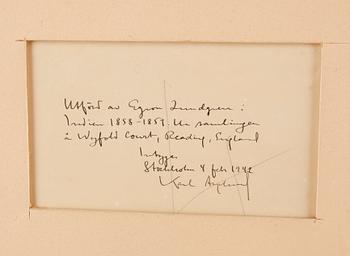 Utförd av Egron Lundgren i
Indien 1858-1859. Ur samlingen
å Wyfold Court, Reading, England
Intygar
Stockholm 4 feb 1942
Karl Asplund